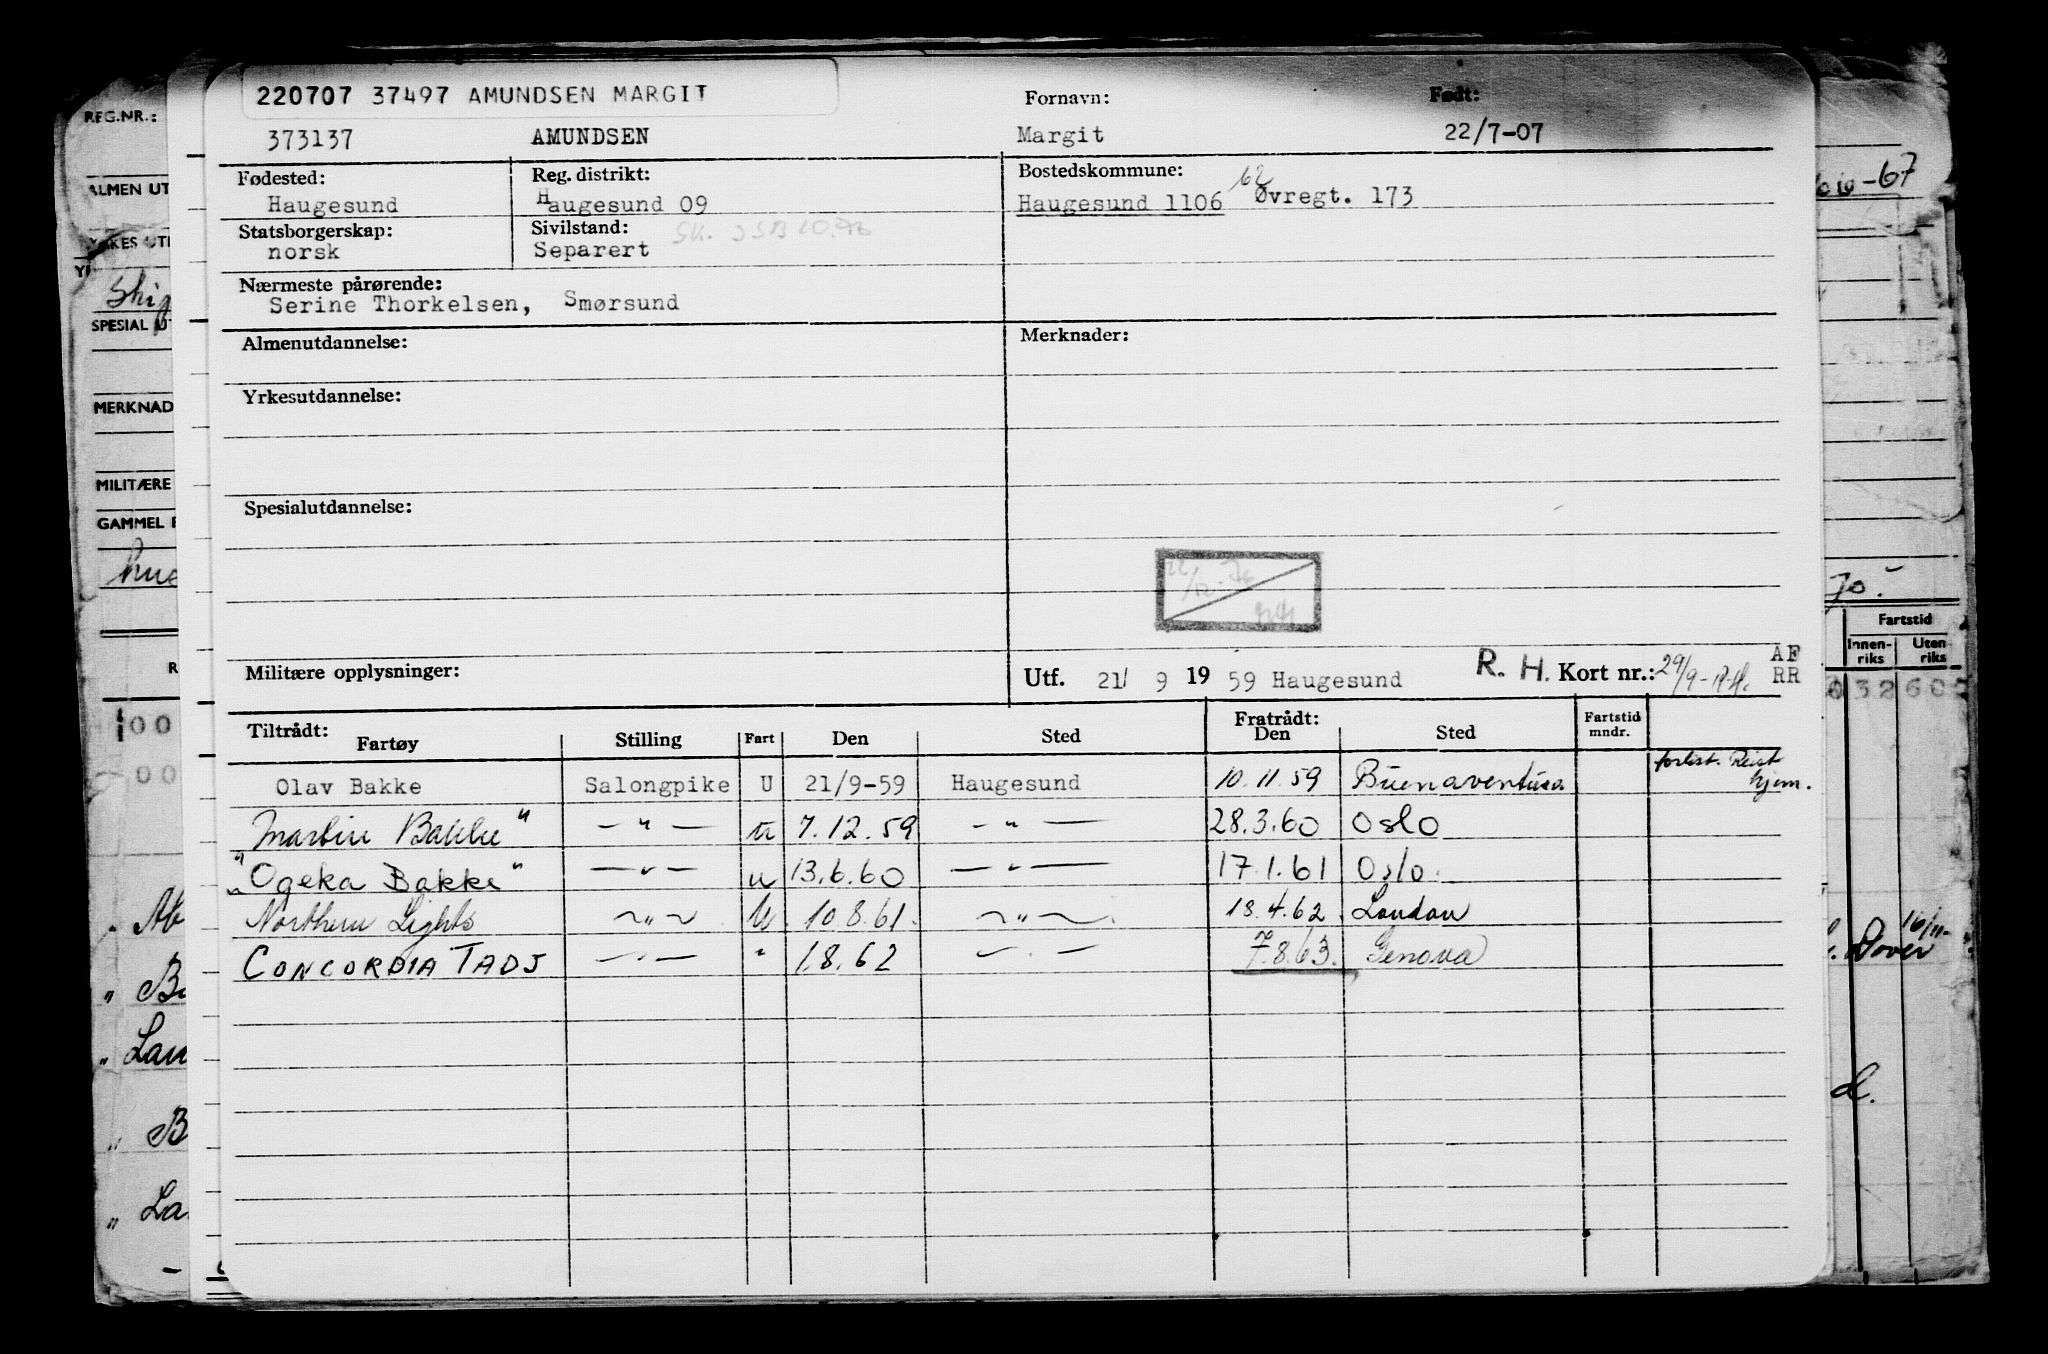 220707 37497 AMUNDSEN MARGIT
REG.NR.:
373137 AMUNDSEN
Fornavn: Født:
Margit 22/7-07
Fødested: Reg. distrikt: Bostedskommune:
Haugesund Haugesund 09 Haugesund 1106 62 Øvregt. 173
Statsborgerskap: Sivilstand:
norsk Separert
Nærmeste pårørende:
Serine Thorkelsen, Smørsund
Almenutdannelse: Merknader:
Yrkesutdannelse:
Spesialutdannelse:
Militære opplysninger: Utf. 21/ 9 19 59 Haugesund R. H. Kort nr.: 29/9- AF RR
Tiltrådt: Fratrådt:
Fartøy Stilling Fart Den Sted Den Sted Fartstid mndr.
Olav Bakke Salongpike U 21/9-59 Haugesund 10.11.59 Buenaventura forlist. Reist hjem.
Martin Bakke" —"— u 7.12.59 —"— 28.3.60 Oslo
"Ogeka Bakke" —"— u 13.6.60 —"— 17.1.61 Oslo.
Northern Lights —"— U 10.8.61. —"— 18.4.62 London
CONCORDIA TADJ —"— " 1.8.62 —"— 7.8.63. Genova
ALMEN UT
SPESIAL UT
MERKNAD
MILITÆRE
GAMMEL
-67
70.-
Fartstid
Innen-riks Uten riks
32 60
00
00
Dover
d.